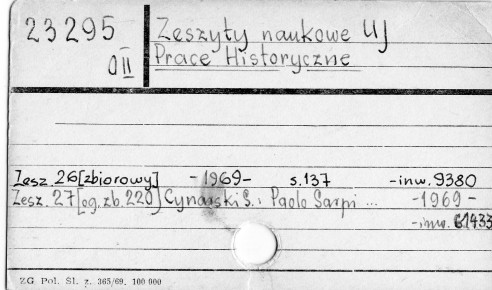 23295 Zeszyty naukowe UJ
OII Prace Historyczne
Zesz. 26 [zbiorowy] - 1969 - s. 137 - inw. 9380
Zesz. 27 [og. zb. 220] Cynarski S.: Paolo Sarpi ... - 1969 -
- inw. 61433
ZG Pol. Śl. z. 365/69. 100 000